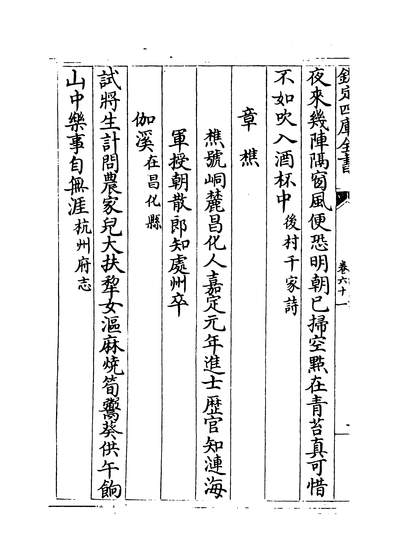 欽定四庫全書
卷六十一
夜來幾陣隔窗風便恐明朝已掃空㸃在青苔真可惜
不如吹入酒杯中後村千家詩
章樵
樵號峒麓昌化人嘉定元年進士歴官知漣海
軍授朝散郎知處州卒
伽溪在昌化縣
試將生計問農家兒大扶犂女漚麻燒筍鬻葵供午餉
山中樂事自無涯杭州府志